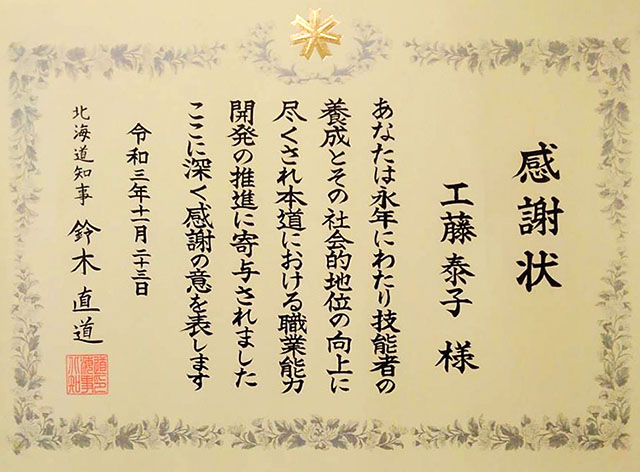 感謝状
工藤泰子 様
あなたは永年にわたり技能者の
養成とその社会的地位の向上に
尽くされ本道における職業能力
開発の推進に寄与されました
ここに深く感謝の意を表します
令和三年十一月二十三日
北海道知事 鈴木直道